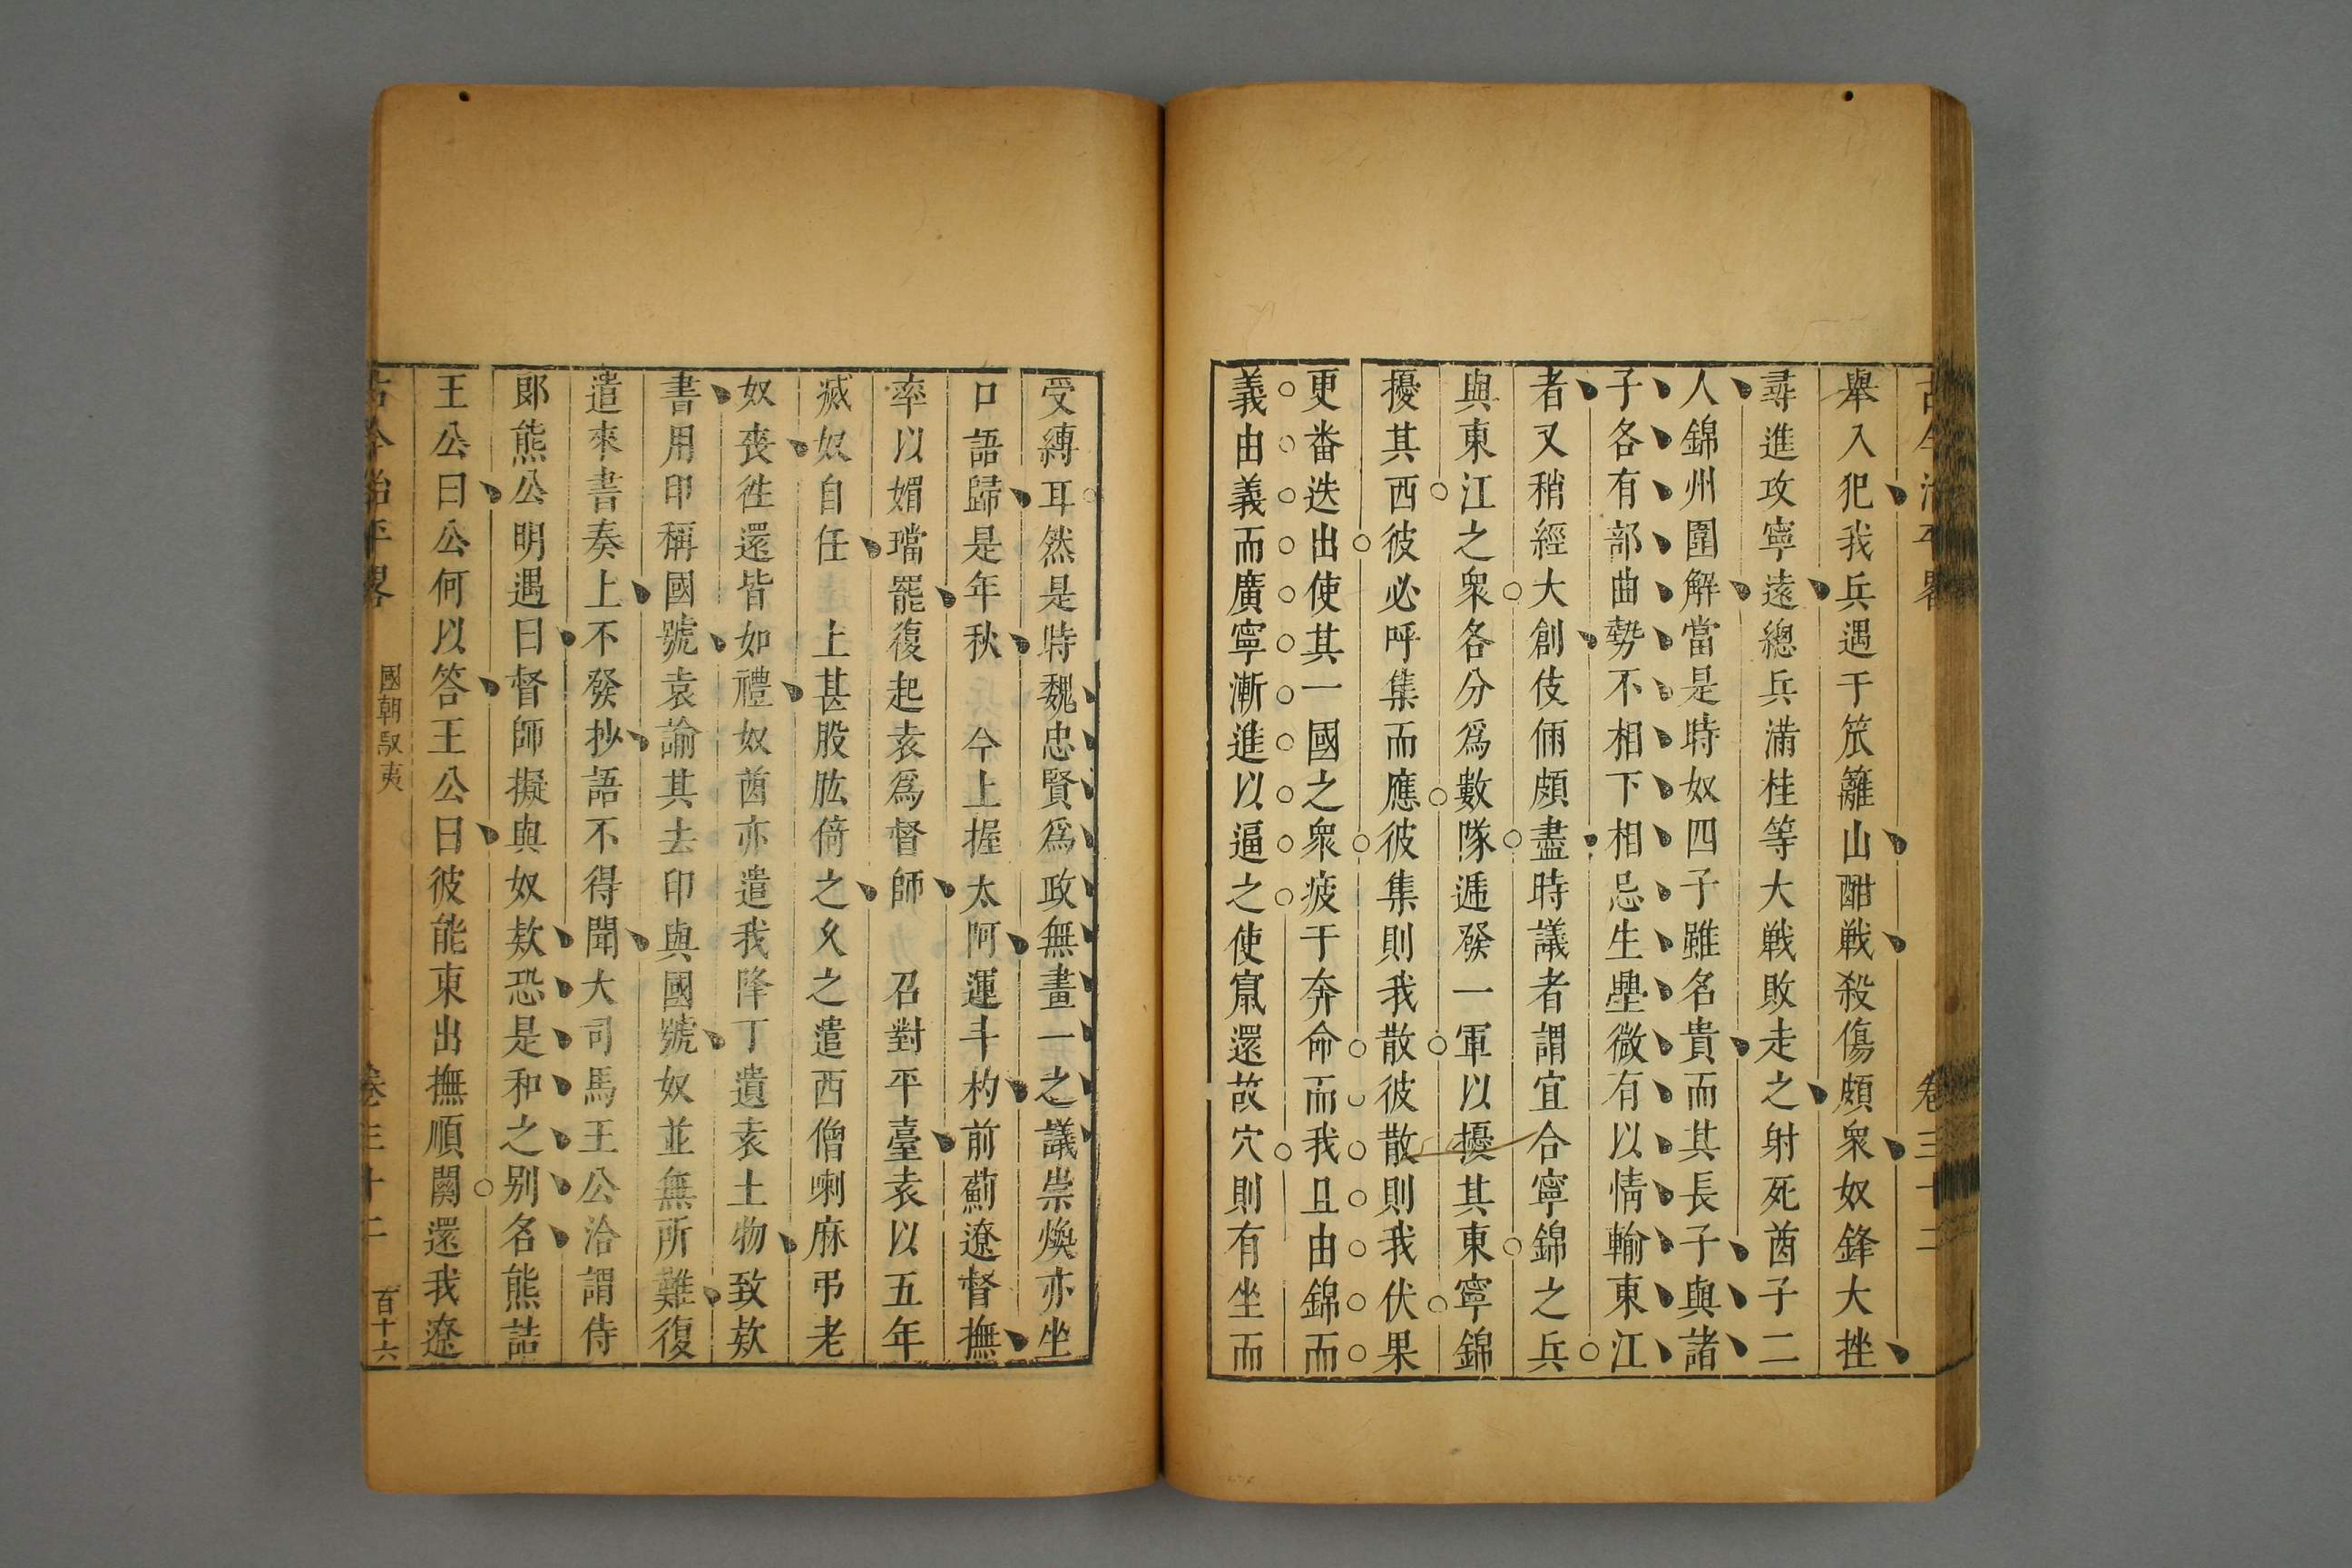 古今治平畧 卷三十二
舉入犯我兵遇于笊籬山酣戰殺傷頗衆奴鋒大挫
尋進攻寧遠總兵滿桂等大戰敗走之射死酋子二
人錦州圍解當是時奴四子雖名貴而其長子與諸
子各有部曲勢不相下相忌生釁微有以情輸東江
者又稍經大創伎倆頗盡時議者謂宜合寧錦之兵
與東江之衆各分爲數隊遞發一軍以擾其東寧錦
擾其西彼必呼集而應彼集則我散彼散則我伏果
更畨迭出使其一國之衆疲于奔命而我且由錦而
義由義而廣寧漸進以逼之使窠還故穴則有坐而
受縛耳然是時魏忠賢爲政無畫一之議崇煥亦坐
口語歸是年秋 今上握太阿運斗杓前薊遼督撫
率以媚璫罷復起袁爲督師 召對平臺袁以五年
滅奴自任 上甚股肱倚之久之遣西僧喇麻弔老
奴喪徃還皆如禮奴酋亦遣我降丁遺袁土物致欵
書用印稱國號袁諭其去印與國號奴並無所難復
遣來書奏上不發抄語不得聞大司馬王公洽謂侍
郎熊公明遇曰督師擬與奴欵恐是和之别名熊詰
王公曰公何以答王公曰彼能東出撫順關還我遼
古今治平畧 國朝馭夷 卷三十二 百十六